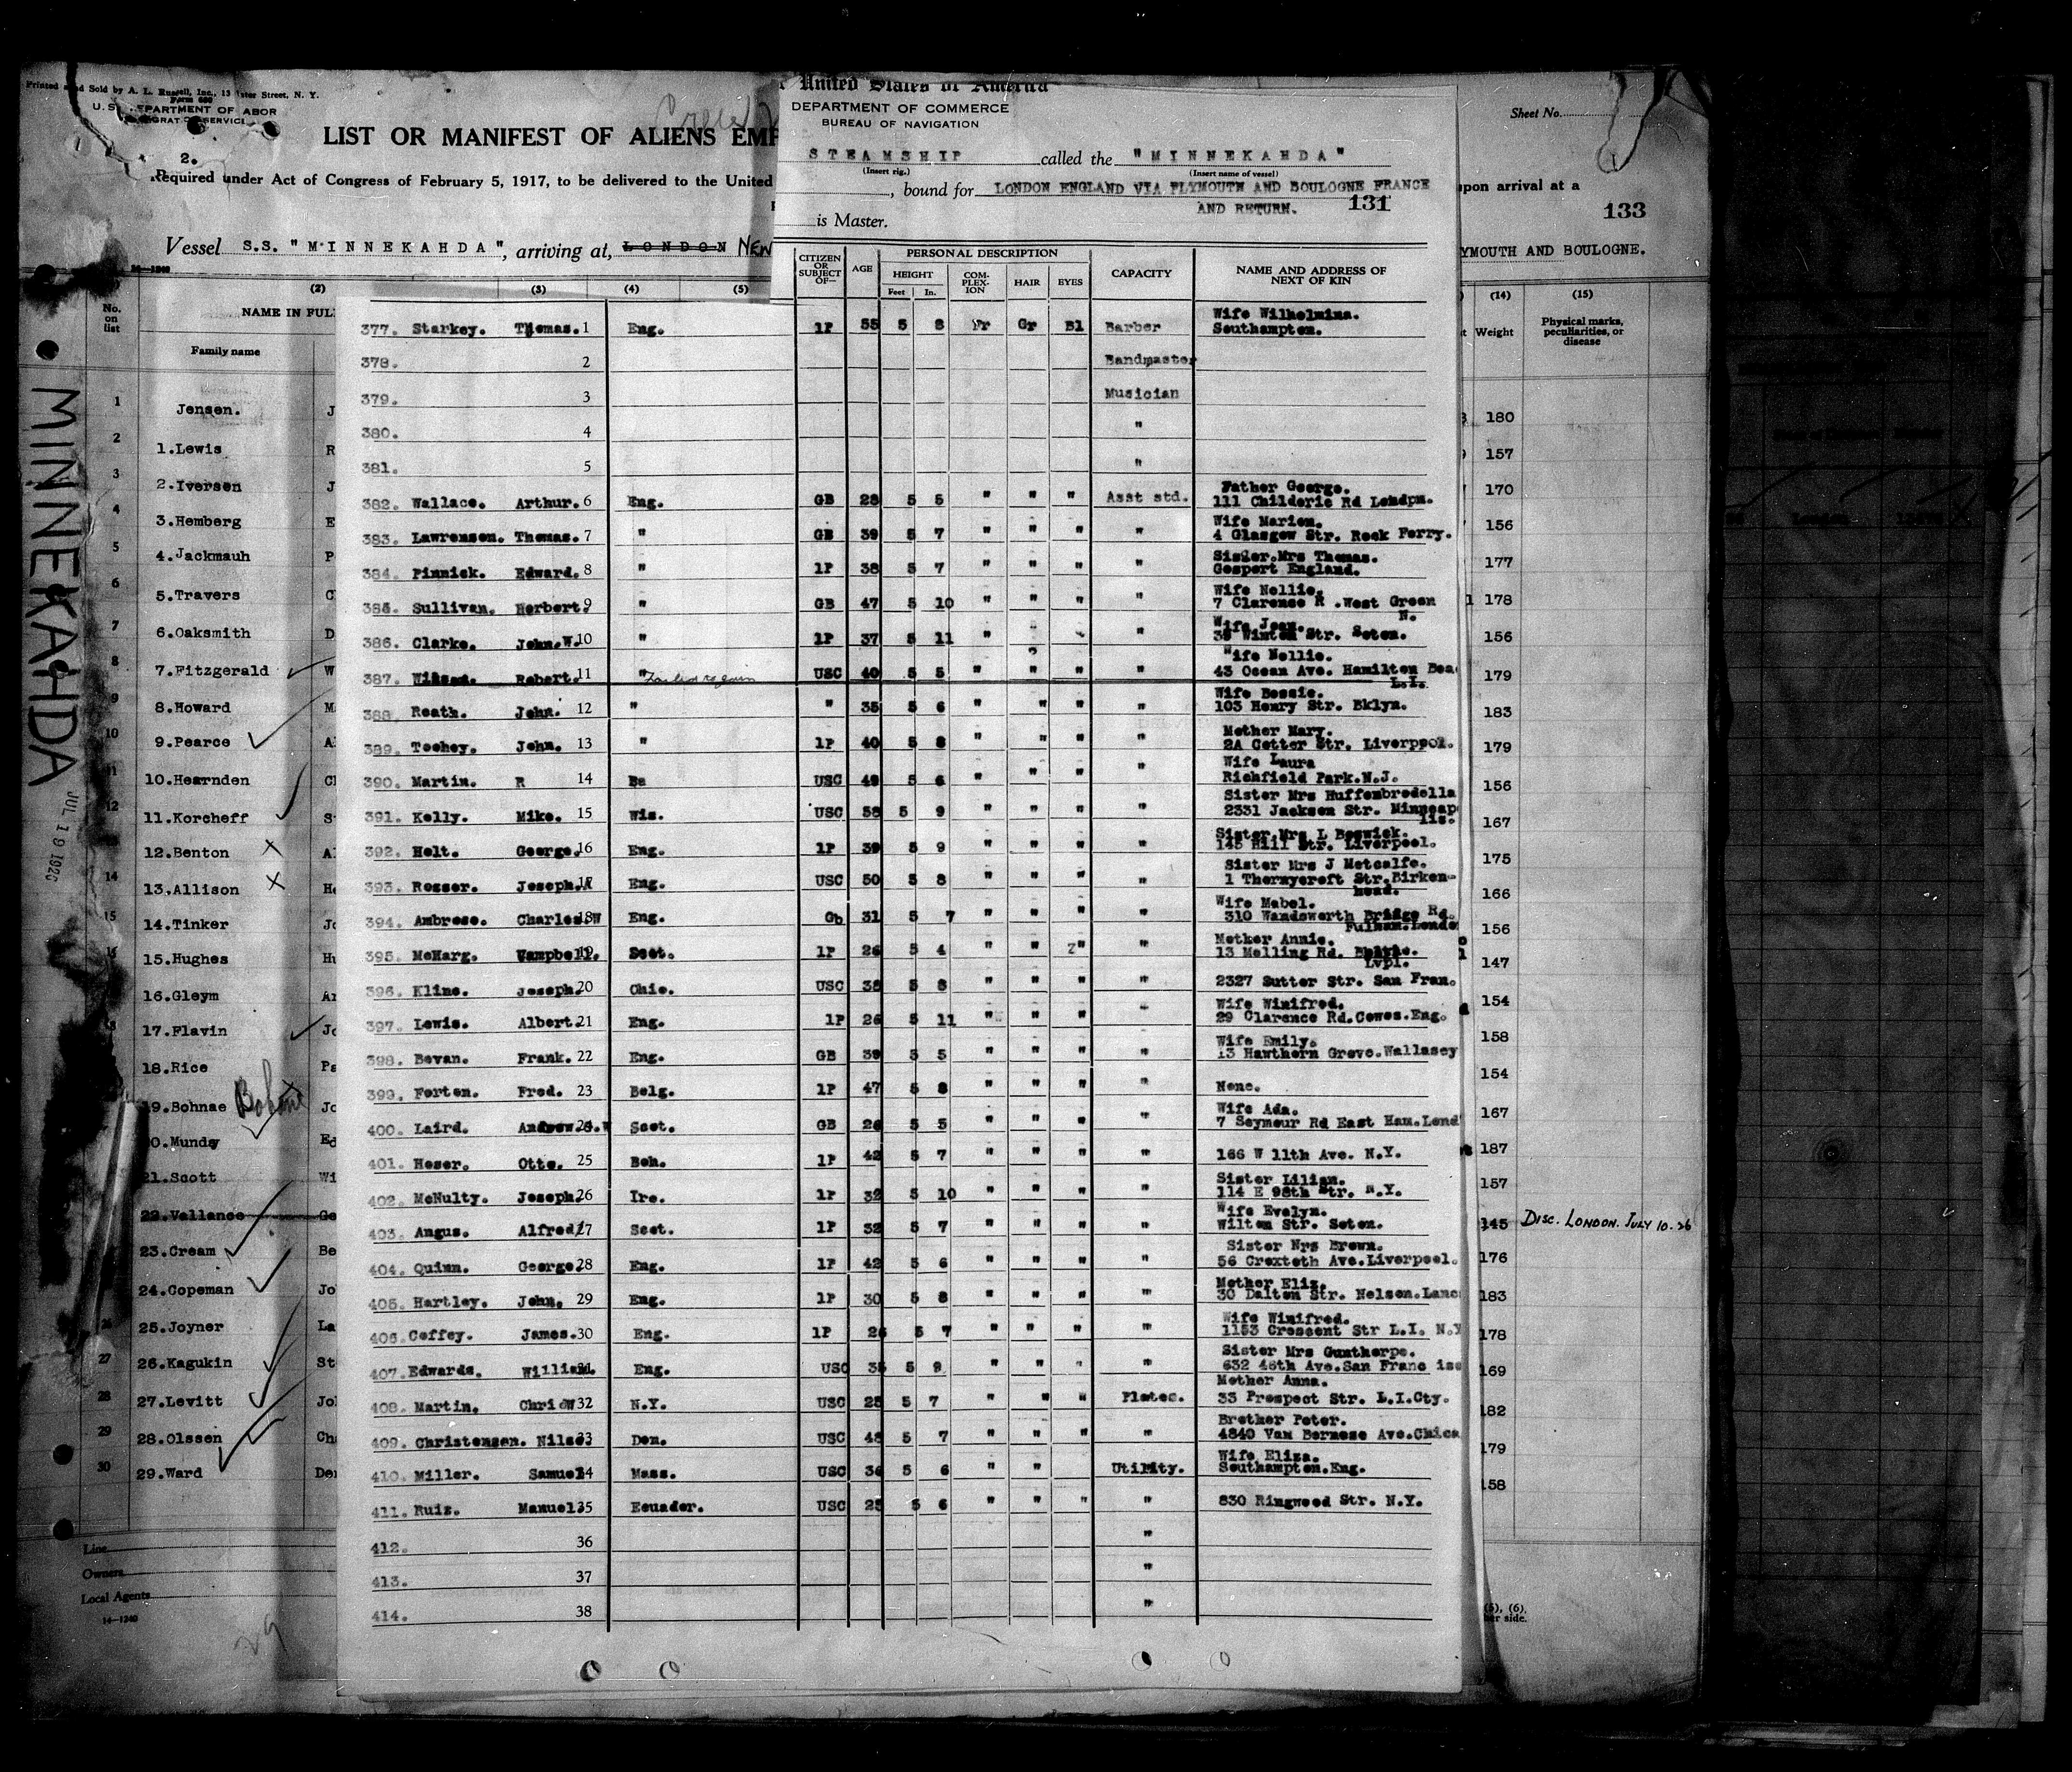 Printed and Sold by A. L. Russell, Inc., 13 ster Street, N. Y.
Form 680
U.S. DEPARTMENT OF LABOR
IMMIGRATION SERVICE
2.
LIST OR MANIFEST OF ALIENS EMP
Required under Act of Congress of February 5, 1917, to be delivered to the United
Vessel S.S. "MINNEKAHDA", arriving at, LONDON NEW
14-1240
(2) (3) (4) (5)
No. on list
NAME IN FUL
Family name
1 Jensen. J
2 1.Lewis R
3 2.Iversen J
4 3.Hemberg E
5 4.Jackmauh P
6 5.Travers C
7 6.Oaksmith D
8 7.Fitzgerald W
9 8.Howard M
10 9.Pearce A
11 10.Hearnden Cl
12 11.Korcheff S
12.Benton Al
14 13.Allison He
15 14.Tinker Jo
16 15.Hughes Hu
16.Gleym Ar
18 17.Flavin Jo
18.Rice Pa
19.Bohnae Jo
20.Mundy Ed
21.Scott Wi
22.Vallance Ge
23.Cream Be
24.Copeman Jo
26 25.Joyner La
27 26.Kagukin St
28 27.Levitt Jo
29 28.Olssen Cha
30 29.Ward Der
Line
Owners
Local Agents
14-1240
29
MINNEKAHDA
JUL 19 1926
United States of America
DEPARTMENT OF COMMERCE
BUREAU OF NAVIGATION
STEAMSHIP called the "MINNEKAHDA"
(Insert rig.) (Insert name of vessel)
, bound for LONDON ENGLAND VIA PLYMOUTH AND BOULOGNE FRANCE
AND RETURN. 131
is Master.
CITIZEN OR SUBJECT OF— AGE PERSONAL DESCRIPTION CAPACITY NAME AND ADDRESS OF NEXT OF KIN
HEIGHT COM-PLEX-ION HAIR EYES
Feet In.
377. Starkey. Thomas. 1 Eng. 1P 55 5 8 Fr Gr Bl Barber Wife Wilhelmina. Southampton.
378. 2 Bandmaster
379. 3 Musician
380. 4 "
381. 5 "
382. Wallace. Arthur. 6 Eng. GB 28 5 5 " " " Asst std. Father George. 111 Childeric Rd Londpn.
383. Lawrenson. Thomas. 7 " GB 39 5 7 " " " " Wife Marion. 4 Glasgow Str. Rock Ferry.
384. Pinnick. Edward. 8 " 1P 38 5 7 " " " " Sister.Mrs Thomas. Gosport England.
385. Sullivan. Herbert. 9 " GB 47 5 10 " " " " Wife Nellie. 7 Clarence R .West Green N.
386. Clarke. John.W. 10 " 1P 37 5 11 " " " Wife Jean. Winton Str. Soton.
387. Wilson. Robert. 11 " Failed to join USC 40 5 5 " " " " Wife Nellie. 43 Ocean Ave. Hamilton Bea L.I.
388. Roath. John. 12 " " 35 5 6 " " " " Wife Bessie. 103 Henry Str. Bklyn.
389. Toohey. John. 13 " 1P 40 5 8 " " " " Mother Mary. 2A Cotter Str. Liverpool.
390. Martin. R 14 USC 49 5 6 " " " " Wife Laura Richfield Park.N.J.
391. Kelly. Mike. 15 Wis. USC 58 5 9 " " " " Sister Mrs Huffenbredella 2331 Jackson Str. Minneap lis.
392. Holt. George. 16 Eng. 1P 39 5 9 " " " " Sister.Mrs L Beswick. 145 Hill Str. Liverpool.
393. Rosser. Joseph. 17 Eng. USC 50 5 8 " " " " Sister Mrs J Metcalfe. 1 Thornycroft Str.Birken-head.
394. Ambrose. Charles.W 18 Eng. Gb 31 5 7 " " " " Wife Mabel. 310 Wandsworth Bridge Rd. Fulham.Londo
395. McHarg. Campbell. 19 Scot. 1P 26 5 4 " " " " Mother Annie. 13 Melling Rd. Lvpl.
396. Kline. Joseph. 20 Ohio. USC 38 5 8 " " " " 2327 Sutter Str. San Fran.
397. Lewis. Albert. 21 Eng. 1P 26 5 11 " " " " Wife Winifred. 29 Clarence Rd.Cowes.Eng.
398. Bevan. Frank. 22 Eng. GB 39 5 5 " " " " Wife Emily. 13 Hawthorn Grove.Wallasey
399. Forton. Fred. 23 Belg. 1P 47 5 8 " " " " None.
400. Laird. Andrew. 24 Scot. GB 26 5 5 " " " " Wife Ada. 7 Seymour Rd East Ham.Lond
401. Hoser. Otto. 25 Boh. 1P 42 5 7 " " " " 166 W 11th Ave. N.Y.
402. McNulty. Joseph. 26 Ire. 1P 32 5 10 " " " " Sister Lilian. 114 E 98th Str. N.Y.
403. Angus. Alfred. 27 Scot. 1P 32 5 7 " " " " Wife Evelyn. Wilton Str. Soton.
404. Quinn. George. 28 Eng. 1P 42 5 6 " " " " Sister Mrs Brown. 56 Croxteth Ave.Liverpool.
405. Hartley. John. 29 Eng. 1P 30 5 8 " " " " Mother Eliz. 30 Dalton Str. Nelson.Lanc
406. Coffey. James. 30 Eng. 1P 26 5 7 " " " " Wife Winifred. 1153 Crescent Str L.I. N.Y
407. Edwards. William. 31 Eng. USC 35 5 9 " " " " Sister Mrs Gunthorpe. 632 46th Ave.San Franc isc
408. Martin. Chris W 32 N.Y. USC 25 5 7 " " " Plates. Mother Anna. 33 Prospect Str. L.I.Cty.
409. Christensen. Nils. 33 Den. USC 48 5 7 " " " " Brother Peter. 4840 Van Bernese Ave.Chica
410. Miller. Samuel 34 Mass. USC 36 5 6 " " Utility. Wife Eliza. Southampton.Eng.
411. Ruiz. Manuel. 35 Ecuador. USC 25 5 6 " " " " 830 Ringwood Str. N.Y.
412. 36 "
413. 37 "
414. 38 "
Sheet No.
upon arrival at a
133
YMOUTH AND BOULOGNE.
(14) (15)
Weight Physical marks, peculiarities, or disease
180
157
170
156
177
178
156
179
183
179
156
167
175
166
156
147
154
158
154
167
187
157
145 DISC. LONDON. JULY 10.26
176
183
178
169
182
179
158
(5), (6).
her side.